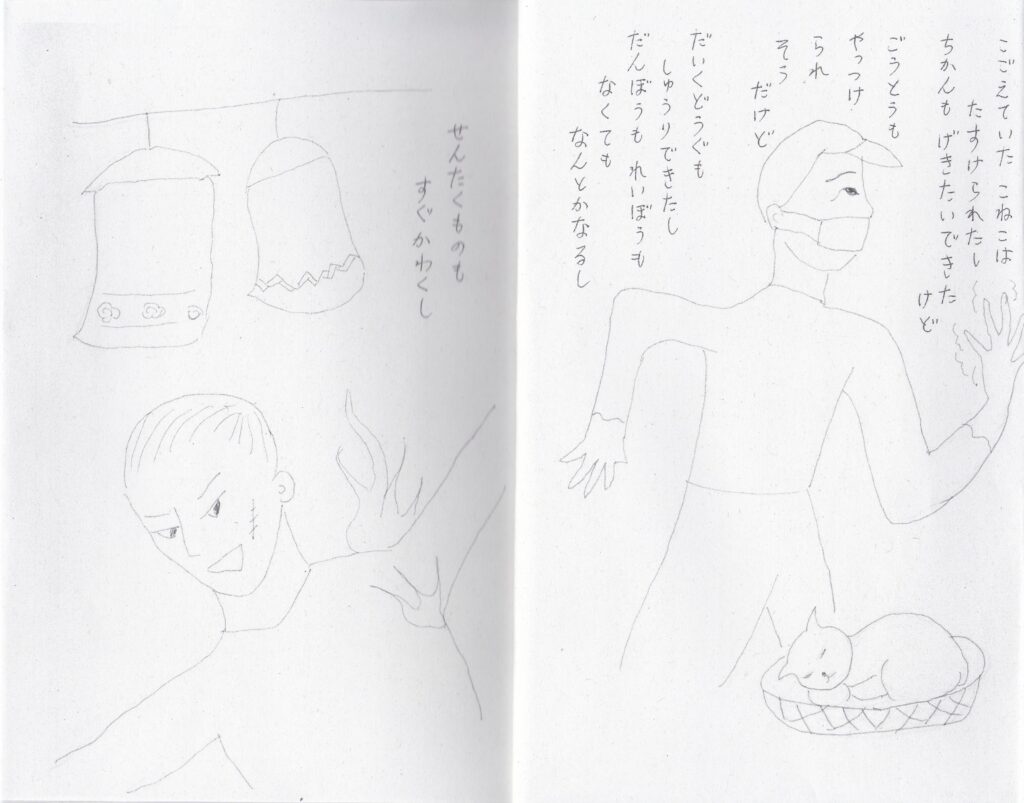 こごえていた こねこは
たすけられたし
ちかんも げきたいできた
けど
ごうとうも
やっつけ
られ
そう
だけど
だいくどうぐも
しゅうりできたし
だんぼうも れいぼうも
なくても
なんとかなるし
せんたくものも
すぐかわくし